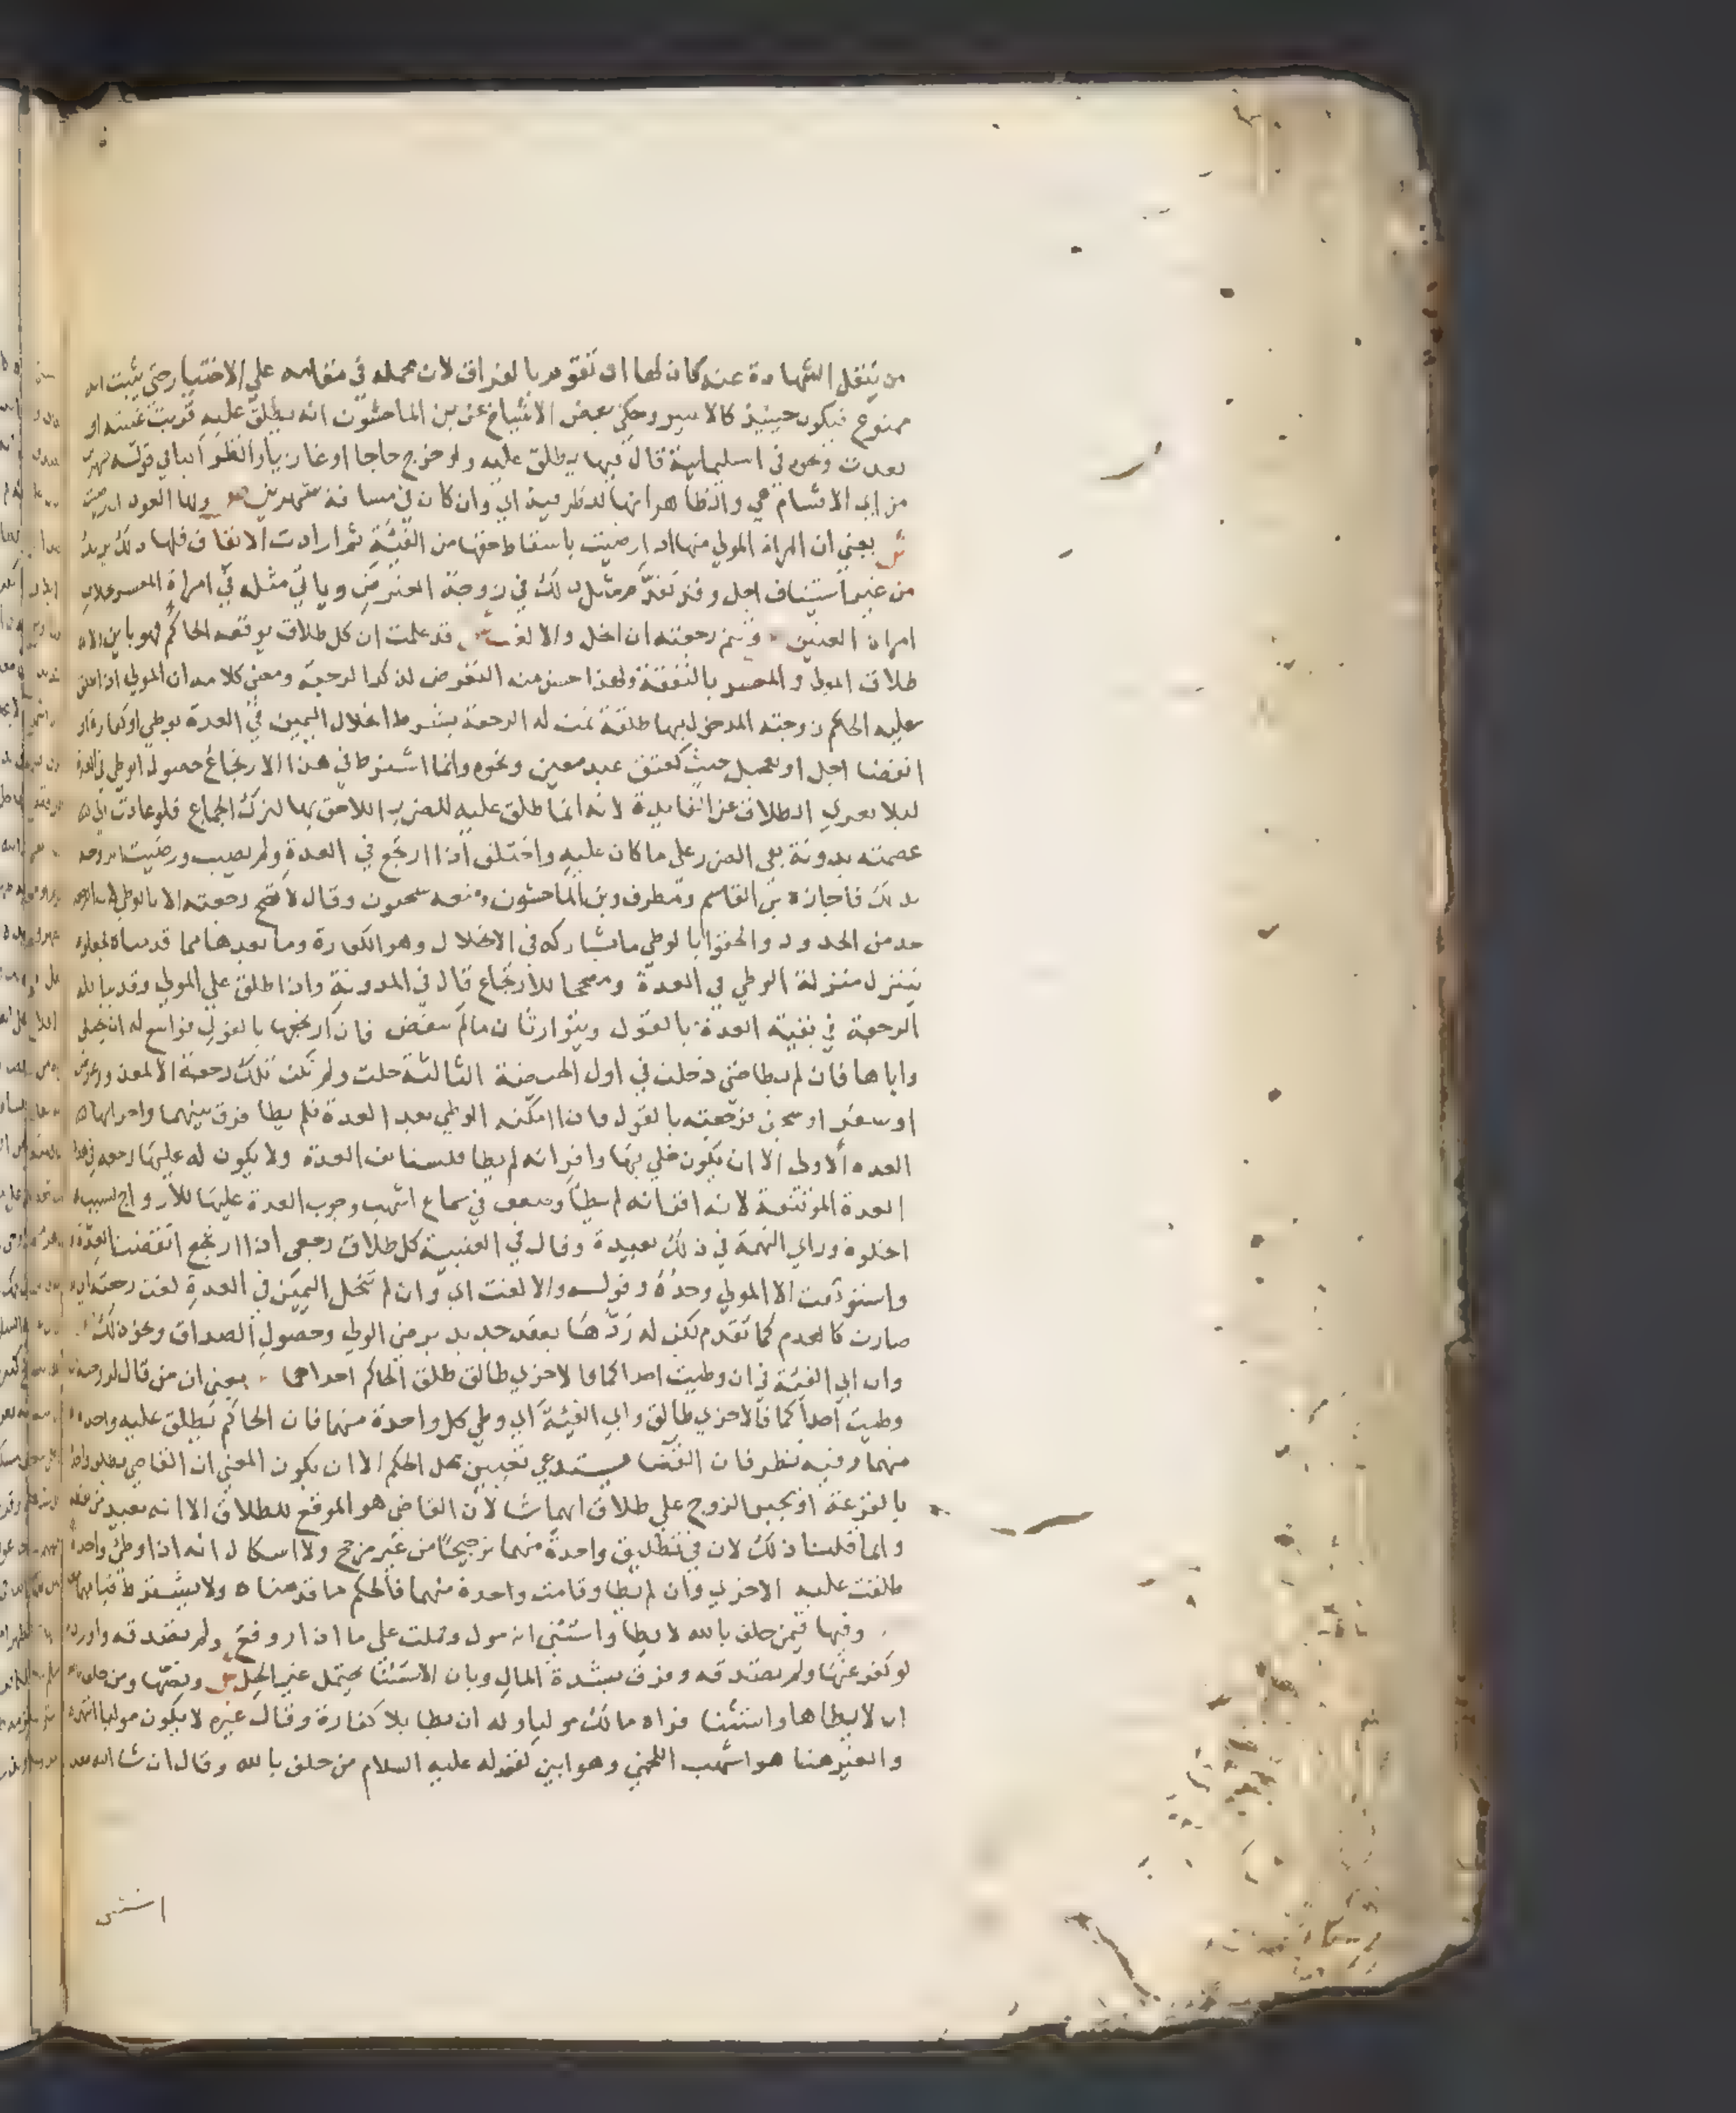 من ينقل الشهادة عنه كان لها ان تقوم بالفراق لان محمله في مقامه علي الاختيار حتي يثبت انه
ممنوع فيكون حينيذ كالاسير وحكي بعض الاشياخ عن بن الماجشون انه يطلق عليه قربت غيبته او
بعدت ونحوه في السليمانية قال فيها يطلق عليه ولو خرج حاجا او غازيا وانظر الباي قوله شهرين
من اي الاقسام هي والظاهر انها للظرفية اي وان كان في مسافة شهرين ولها العود ان رضيت
ش يعني ان المراة المولي منها اذا رضيت باسقاط حقها من الفيئة ثم ارادت الايقاف فلها ذلك يريد
من غير استيناف اجل وقد تقدم مثل ذلك في زوجة المعترض وياتي مثله في امراة المعسر بخلاف
امراة العنين وتتم رجعته ان انحل والا لغت ش قد علمت ان كل طلاق يوقعه الحاكم فهو باين الا
طلاق المولي والمعسر بالنفقة ولهذا حسن منه التعرض لذكر الرجعة ومعني كلامه ان المولي اذا طلق
عليه الحاكم زوجته المدخول بها طلقة تمت له الرجعة بشرط انحلال اليمين في العدة بوطي او كفارة او
انقضا اجل او تعجيل حنث كعتق عبد معين ونحوه وانما اشترط في هذا الارتجاع حصول الوطي في العدة
ليلا يعري الطلاق عن الفايدة لانه انما طلق عليه للضرر اللاحق بها لترك الجماع فلو عادت الي
عصمته بدونه بقي الضرر علي ما كان عليه واختلف اذا ارتجع في العدة ولم يصب ورضيت
بذلك فاجازه بن القاسم ومطرف وبن الماجشون ومنعه سحنون وقال لا تصح رجعته الا بالوطي
حد من الحدود والحقوا بالوطي ما يشاركه في الانحلال وهو الكفارة وما بعدها مما قدمناه
يتنزل منزلة الوطي في العدة ومصححا للارتجاع قال في المدونة واذا طلق علي المولي وقد بنا فله
الرجعة في بقية العدة بالقول ويتوارثان ما لم تنقض فان ارتجعها بالقول فواسع له ان يخلي
واياها فان لم يطا حتي دخلت في اول الحيضة الثالثة حلت ولم تكن تلك رجعة الا لمعذور بمرض
او سفر او سجن فرجعته بالقول فاذا امكنه الوطي بعد العدة فلم يطا فرق بينهما واجزاتها
العده الاولي الا ان يكون خلي بها واقر انه لم يطا فلستانف العدة ولا يكون له عليها رجعه في هذه
العدة الموتنفة لانه اقر انه لم يطا وضعف في سماع اشهب وجوب العدة عليها للازواج لسبب
الخلوة وراي التهمة في ذلك بعيدة وقال في العتبية كل طلاق رجعي اذا ارتجع انقضت العدة
واستونفت الا المولي وحده وقوله والا لغت اي وان لم تنحل اليمين في العدة لغت رجعته اي
صارت كالعدم كما تقدم لكن له ردها بعقد جديد بر من الوطي وحصول الصداق ونحو ذلك
وان ابي الفيئة في ان وطيت احداكما فالاخري طالق طلق الحاكم احداهما يعني ان من قال لزوجتيه
وطيت احداكما فالاخري طالق وابي الفيئة اي وطي كل واحدة منهما فان الحاكم يطلق عليه واحدة
منهما وفيه نظر فان القضا يستدعي تعيين محل الحكم الا ان يكون المعني ان القاضي يطلق واحدة
بالقرعة او يجبر الزوج علي طلاق ايهما شا لان القاضي هو الموقع للطلاق الا انه بعيد من لفظه
وانما قلنا ذلك لان في تطليق واحدة منهما ترجيحا من غير مرجح ولا اشكال انه اذا وطي واحدة
طلقت عليه الاخري وان لم يطا وقامت واحدة منهما فالحكم ما قدمناه ولا يشترط قيامهما
وفيها فيمن حلف بالله لا يطا واستثني انه مول وحملت علي ما اذا روفع ولم تصدقه واورد
لو كفر عنها ولم تصدقه وفرق بشدة المال وبان الاستثنا يحتمل غير الحل ش ونصها ومن حلف بالله
ان لا يطاها واستثنا فراه مالك موليا وله ان يطا بلا كفارة وقال غيره لا يكون موليا انتهي
والغير هنا هو اشهب اللخمي وهو ابين لقوله عليه السلام من حلف بالله وقال ان شا الله فقد
استثنى